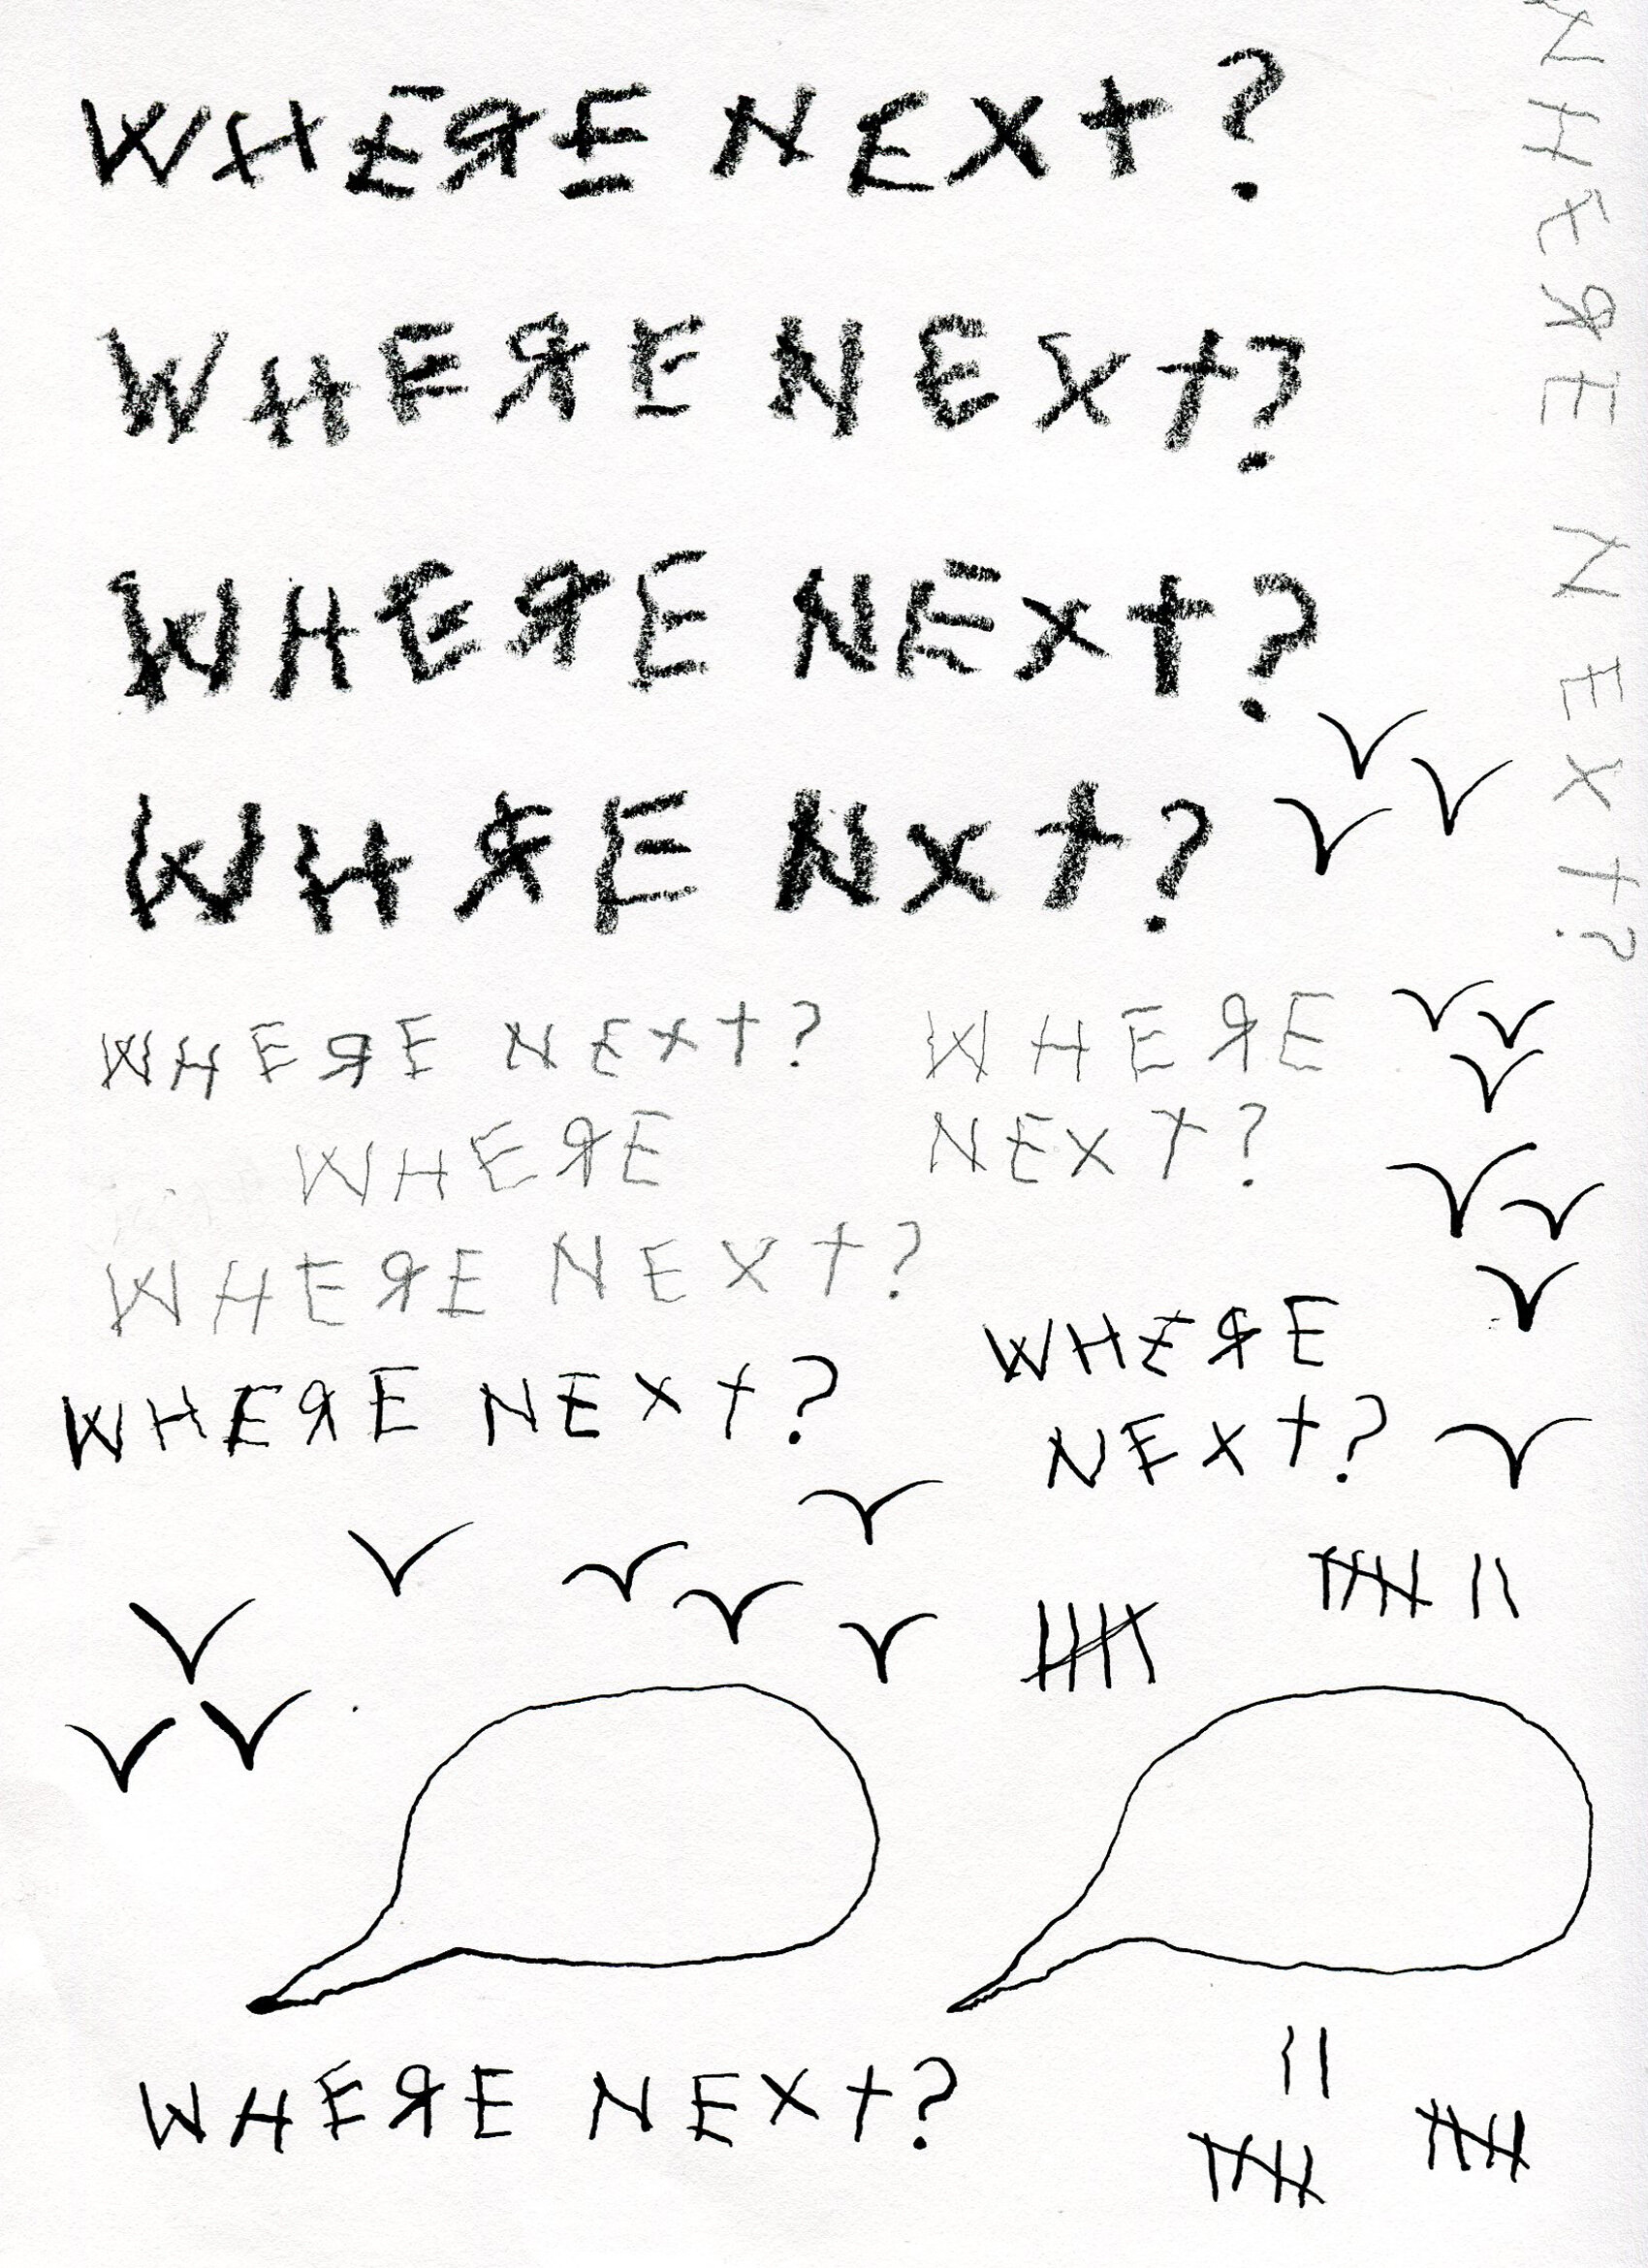 WHERE NEXT?
WHERE NEXT?
WHERE NEXT?
WHRE NXT?
WHERE NEXT?
WHERE
NEXT?
WHERE
WHERE NEXT?
WHERE
NEXT?
WHERE NEXT?
WHERE NEXT?
WHERE NEXT?